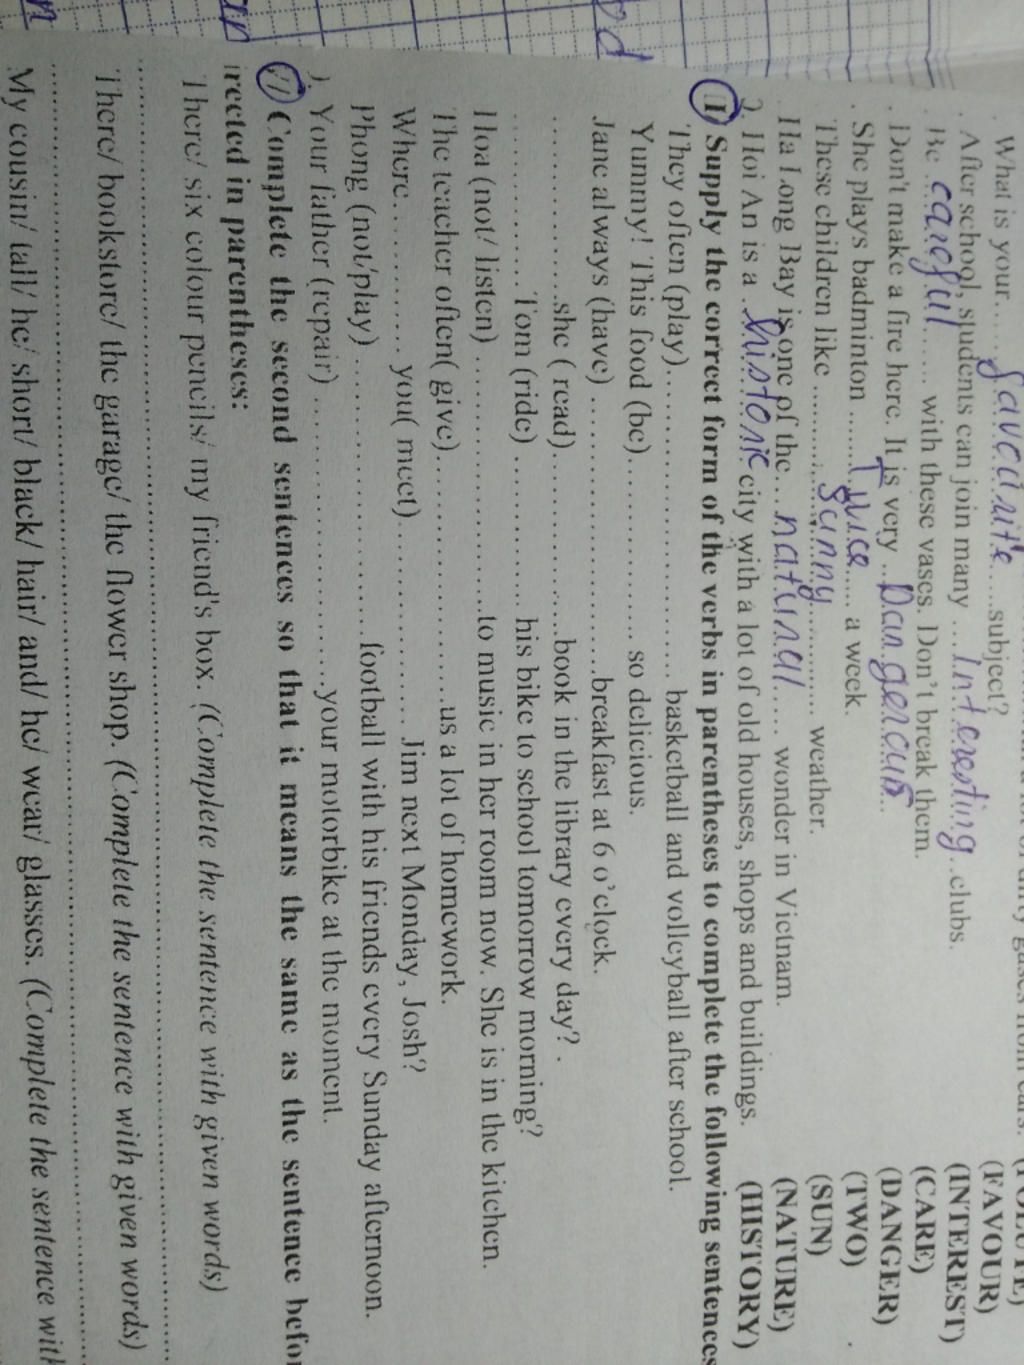 What is your.....favourite.....subject? (FAVOUR)
After school, students can join many ...Interesting..clubs. (INTEREST)
Be ...careful...... with these vases. Don't break them. (CARE)
Don't make a fire here. It is very ..Dangerous.. (DANGER)
She plays badminton ......Twice.... a week. (TWO)
These children like ..........sunny.......... weather. (SUN)
Ha Long Bay is one of the...natural.... wonder in Vietnam. (NATURE)
2. Hoi An is a .historic city with a lot of old houses, shops and buildings. (HISTORY)
Supply the correct form of the verbs in parentheses to complete the following sentences
They often (play)............................ basketball and volleyball after school.
Yummy! This food (be)................ so delicious.
Jane always (have) ..........................breakfast at 6 o'clock.
................she ( read)................book in the library every day? .
................Tom (ride) ................ his bike to school tomorrow morning?
Hoa (not/ listen) .........................to music in her room now. She is in the kitchen.
The teacher often( give)........................us a lot of homework.
Where............... you( meet)................... Jim next Monday, Josh?
Phong (not/play) .........................football with his friends every Sunday afternoon.
Your father (repair) .........................your motorbike at the moment.
Complete the second sentences so that it means the same as the sentence
in parentheses:
There/ six colour pencils/ my friend's box. (Complete the sentence with given words)
There/ bookstore/ the garage/ the flower shop. (Complete the sentence with given words)
My cousin/ tall/ he/ short/ black/ hair/ and/ he/ wear/ glasses. (Complete the sentence